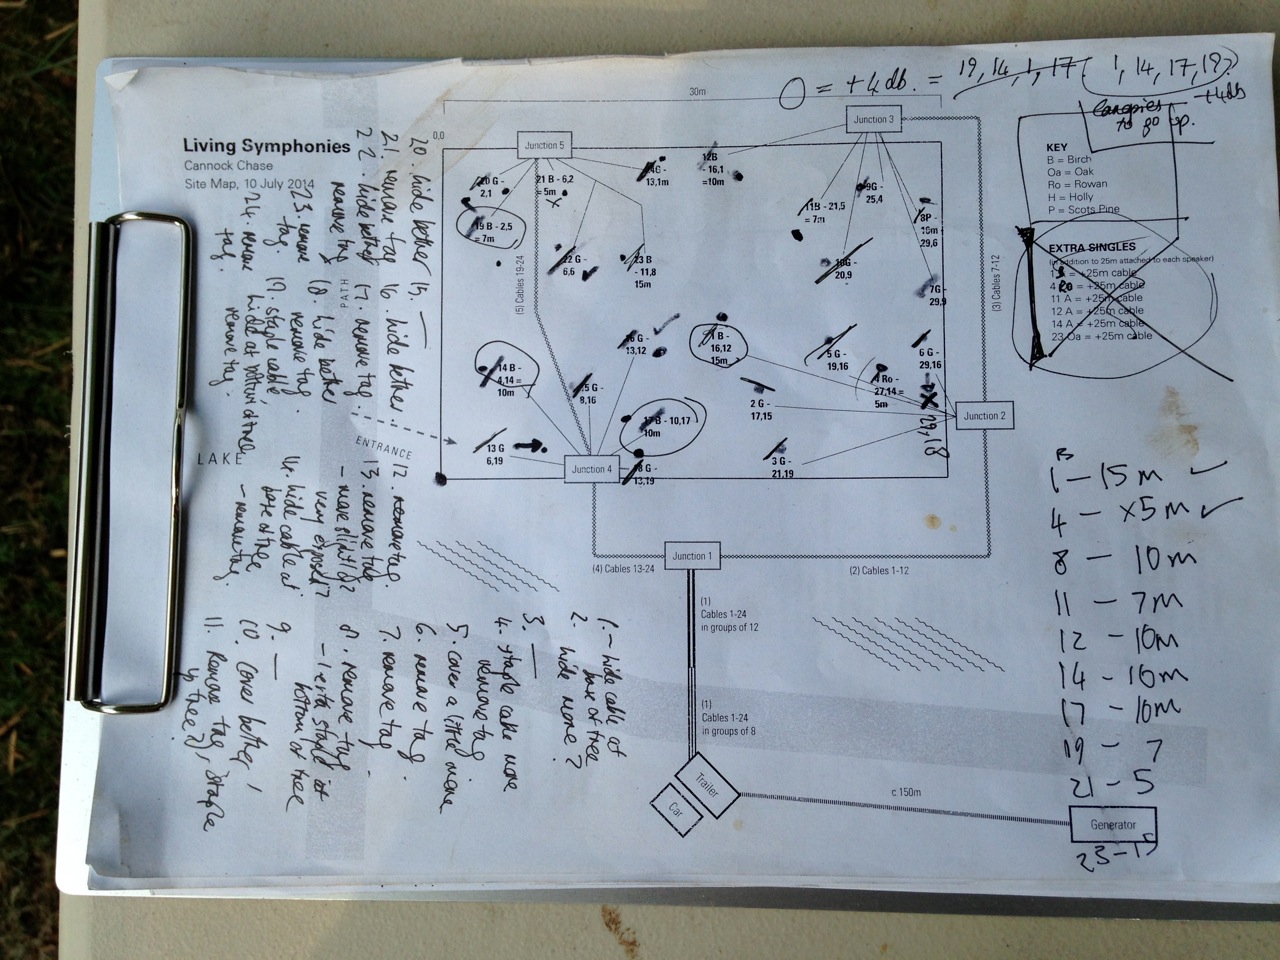 Living Symphonies
Cannock Chase
Site Map, 10 July 2014
0,0
30m
O = +4db. = 19, 14, 1, 17 (1, 14, 17, 19)
+4db
Canopies
to go up.
KEY
B = Birch
Oa = Oak
Ro = Rowan
H = Holly
P = Scots Pine
EXTRA SINGLES
(in addition to 25m attached to each speaker)
= +25m cable
= +25m cable
11 A = +25m cable
12 A = +25m cable
14 A = +25m cable
23 Oa = +25m cable
Junction 5
Junction 3
20 G -
2,1
21 B - 6,2
= 5m
19 B - 2,5
= 7m
22 G -
6,6
23 B
- 11,8
15m
13,1m
12B
- 16,1
=10m
11B - 21,5
= 7m
9G -
25,4
8P -
10m
29,6
20,9
7G -
29,9
(5) Cables 19-24
(3) Cables 7-12
PATH
ENTRANCE
LAKE
16 G -
13,12
1 B -
16,12
15m
5 G -
19,16
6 G -
29,16
29,18
4 Ro -
27,14 =
5m
14 B -
4,14 =
10m
15 G -
8,16
2 G -
17,15
17 B - 10,17
10m
13 G
6,19
3 G -
21,19
18 G -
13,19
Junction 4
Junction 2
Junction 1
(4) Cables 13-24
(2) Cables 1-12
(1)
Cables 1-24
in groups of 12
(1)
Cables 1-24
in groups of 8
Trailer
Car
c.150m
Generator
B
1 - 15m ✓
4 - x5m ✓
8 - 10m
11 - 7m
12 - 10m
14 - 10m
17 - 10m
19 - 7
21 - 5
23-15
1. - hide cable at
base of tree
2. hide more?
3. —
4. staple cable more
remove tag
5. cover a little more
6. remove tag.
7. remove tag
8. remove tag.
bottom of tree
9. —
10. cover better,
11. remove tag,
staple
12. remove tag.
13. remove tag
- move slightly?
very exposed?
14. hide cable at
base of tree
- remove tag.
15. —
16. hide better.
17. remove tag.
18. hide better
remove tag.
19. staple cable
hide at bottom of tree
remove tag.
20. hide better
21. remove tag
22. hide better
remove tag
23. remove
tag.
24. remove
tag.